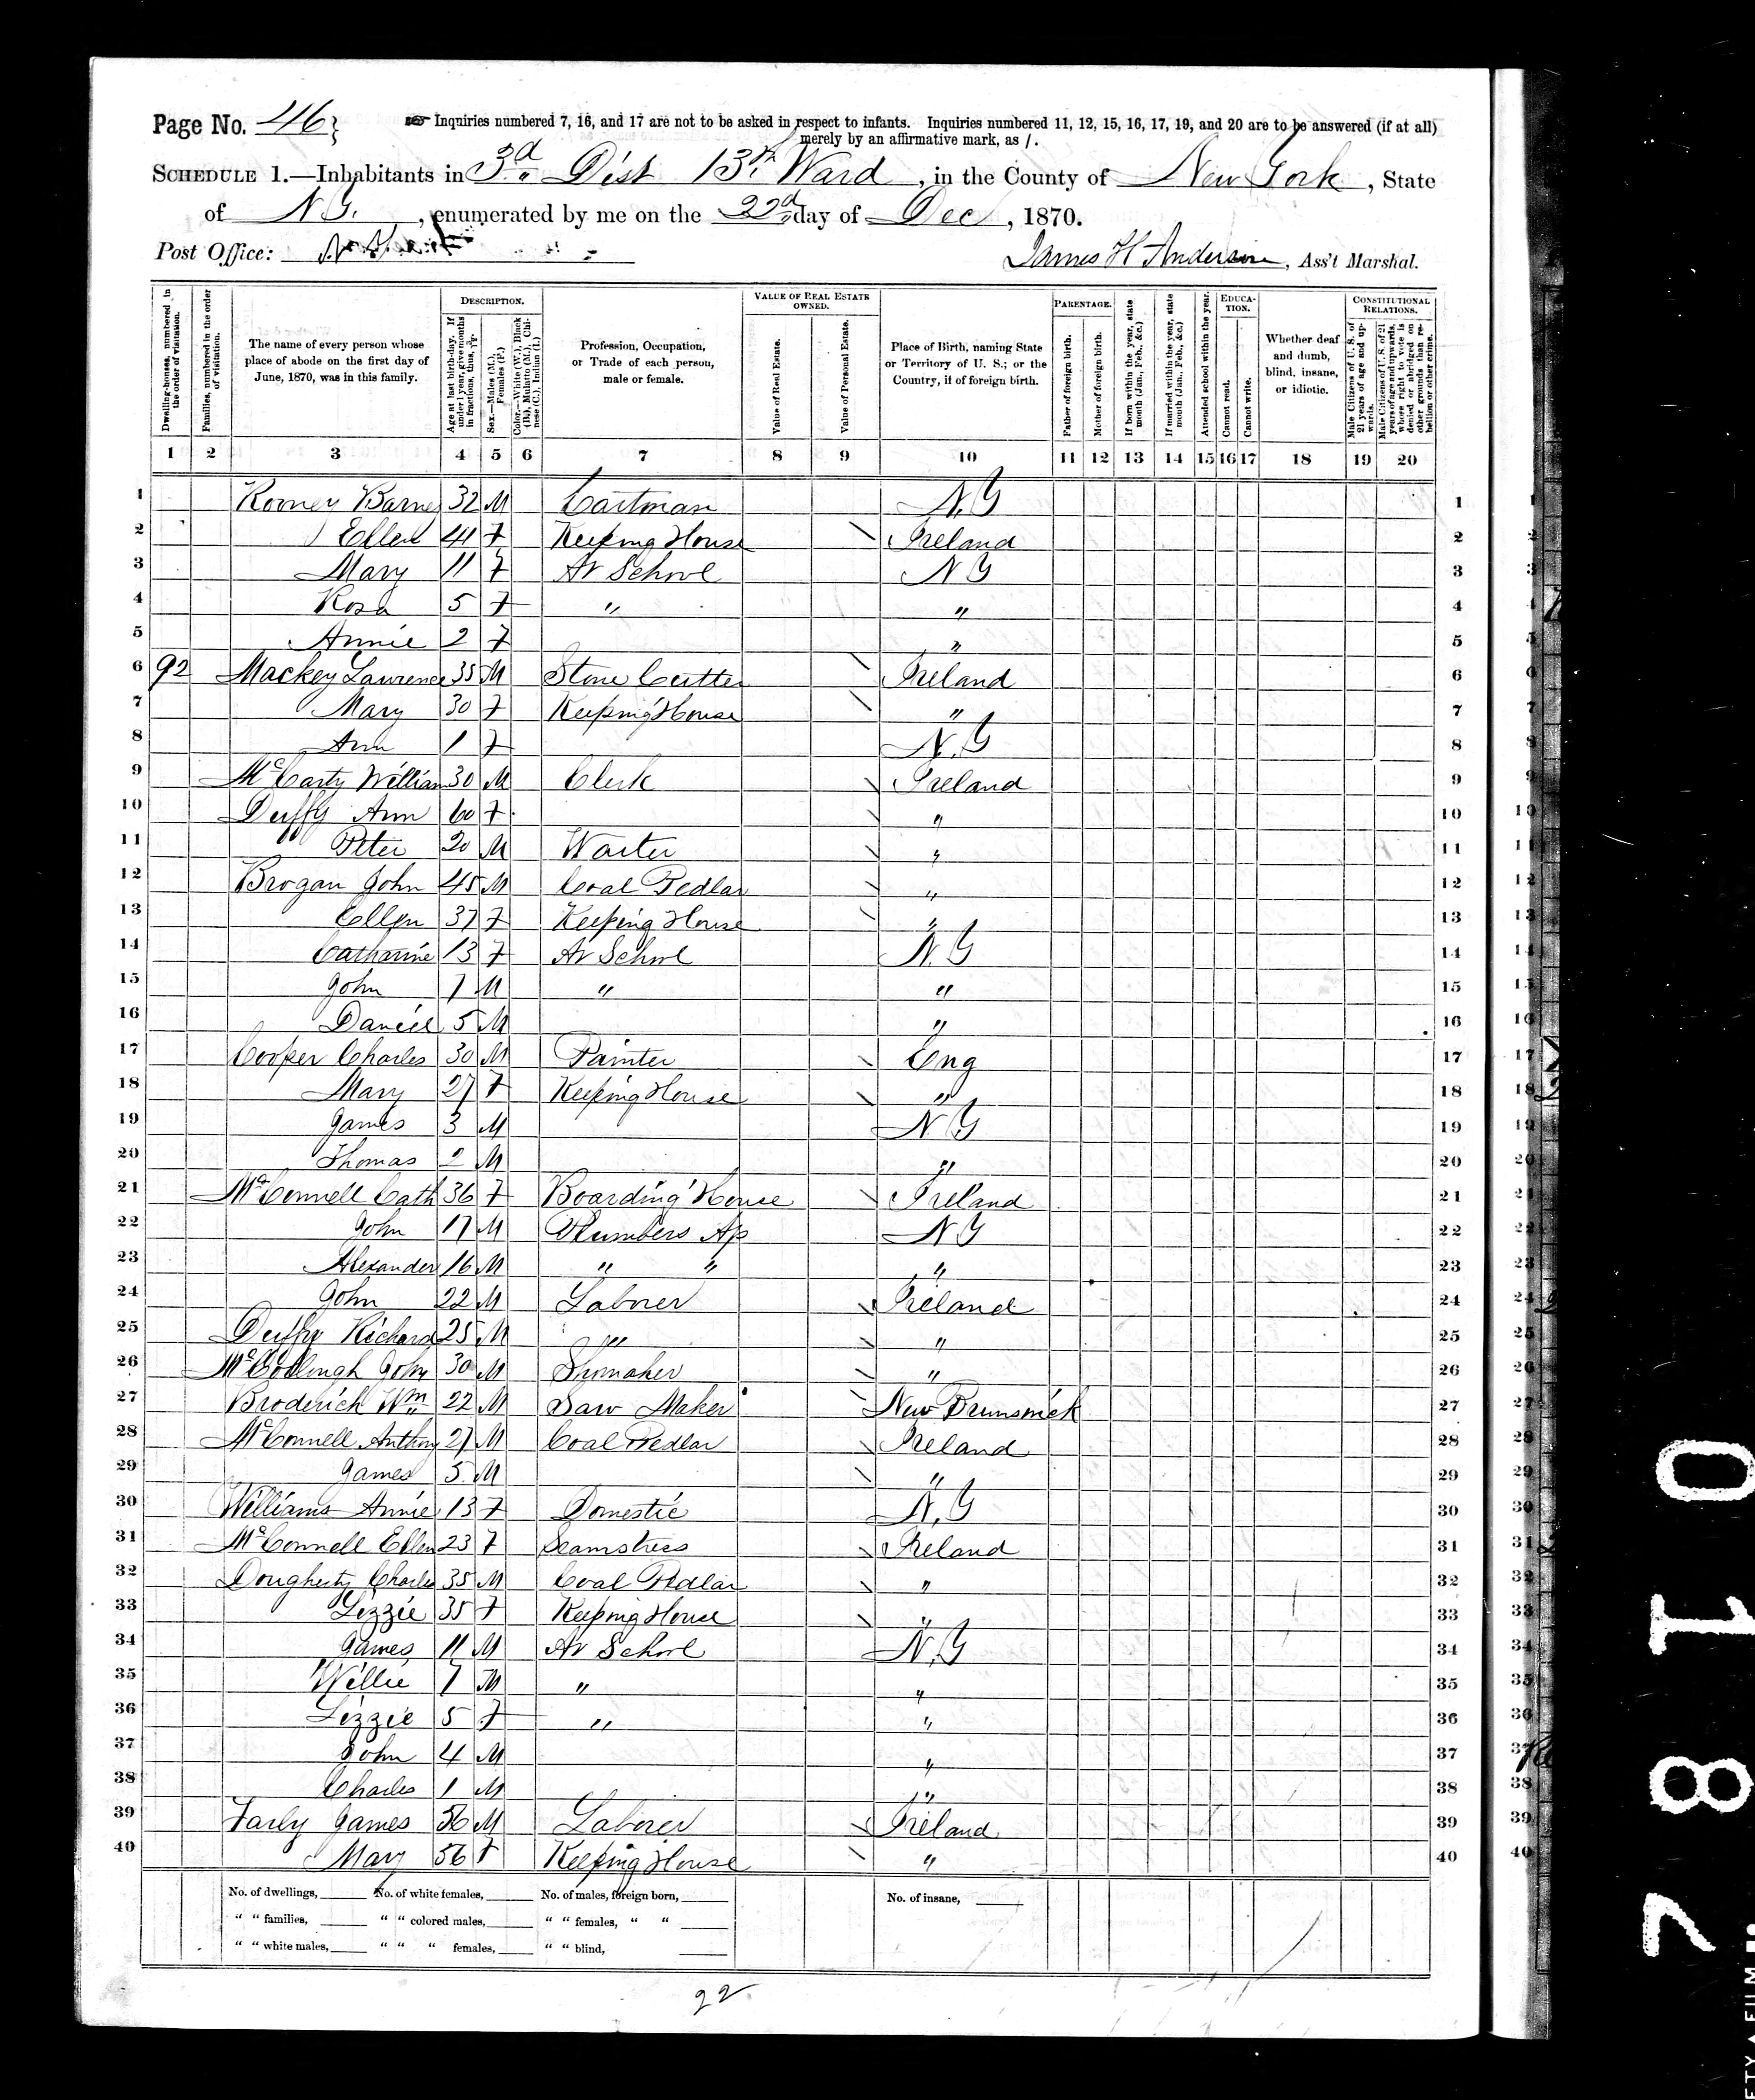 Page No. 46
Inquiries numbered 7, 16, and 17 are not to be asked in respect to infants. Inquiries numbered 11, 12, 15, 16, 17, 19, and 20 are to be answered (if at all)
merely by an affirmative mark, as /.
SCHEDULE 1.—Inhabitants in 3d Dist 13th Ward, in the County of New York, State
of N.Y., enumerated by me on the 22d day of Dec, 1870.
Post Office:
James H Anderson, Ass't Marshal.
DESCRIPTION. VALUE OF REAL ESTATE OWNED. PARENTAGE. EDUCATION. CONSTITUTIONAL RELATIONS.
Dwelling-houses, numbered in the order of visitation.
Families, numbered in the order of visitation.
The name of every person whose place of abode on the first day of June, 1870, was in this family.
Age at last birth-day. If under 1 year, give months in fractions, thus, 3/12.
Sex.—Males (M.), Females (F.)
Color.—White (W.), Black (B.), Mulatto (M.), Chinese (C.), Indian (I.)
Profession, Occupation, or Trade of each person, male or female.
Value of Real Estate.
Value of Personal Estate.
Place of Birth, naming State or Territory of U. S.; or the Country, if of foreign birth.
Father of foreign birth.
Mother of foreign birth.
If born within the year, state month (Jan., Feb., &c.)
If married within the year, state month (Jan., Feb., &c.)
Attended school within the year.
Cannot read.
Cannot write.
Whether deaf and dumb, blind, insane, or idiotic.
Male Citizens of U. S. of 21 years of age and upwards.
Male Citizens of U. S. of 21 years of age and upwards, whose right to vote is denied or abridged on other grounds than rebellion or other crime.
1 2 3 4 5 6 7 8 9 10 11 12 13 14 15 16 17 18 19 20
1 Rooney Barney 32 M Cartman N.Y 1
2 Ellen 41 F Keeping House Ireland 2
3 Mary 11 F At School N Y 3
4 Rosa 5 F " " 4
5 Annie 2 F " 5
6 92 Mackey Lawrence 35 M Stone Cutter Ireland 6
7 Mary 30 F Keeping House " 7
8 Ann 1 F N.Y 8
9 McCarty William 30 M Clerk Ireland 9
10 Duffy Ann 60 F " 10
11 Peter 20 M Waiter " 11
12 Brogan John 45 M Coal Pedlar " 12
13 Ellen 37 F Keeping House " 13
14 Catharine 13 F At School N.Y 14
15 John 7 M " " 15
16 Daniel 5 M " 16
17 Cooper Charles 30 M Painter Eng 17
18 Mary 27 F Keeping House " 18
19 James 3 M N.Y 19
20 Thomas 2 M " 20
21 McConnell Cath 36 F Boarding House Ireland 21
22 John 17 M Plumbers Ap N Y 22
23 Alexander 16 M " " " 23
24 John 22 M Laborer Ireland 24
25 Duffy Richard 25 M " " 25
26 McCollough John 30 M Shomaker " 26
27 Broderick Wm 22 M Saw Maker New Brunswick 27
28 McConnell Anthony 27 M Coal Pedlar Ireland 28
29 James 5 M " 29
30 Williams Annie 13 F Domestic N.Y 30
31 McConnell Ellen 23 F Seamstress Ireland 31
32 Dougherty Charles 35 M Coal Pedlar " 32
33 Lizzie 35 F Keeping House " 33
34 James 11 M At School N.Y 34
35 Willie 7 M " " 35
36 Lizzie 5 F " " 36
37 John 4 M " 37
38 Charles 1 M " 38
39 Farly James 56 M Laborer Ireland 39
40 Mary 56 F Keeping House " 40
No. of dwellings, No. of white females, No. of males, foreign born, No. of insane,
" " families, " " colored males, " " females, " "
" " white males, " " " females, " " blind,
22
7810